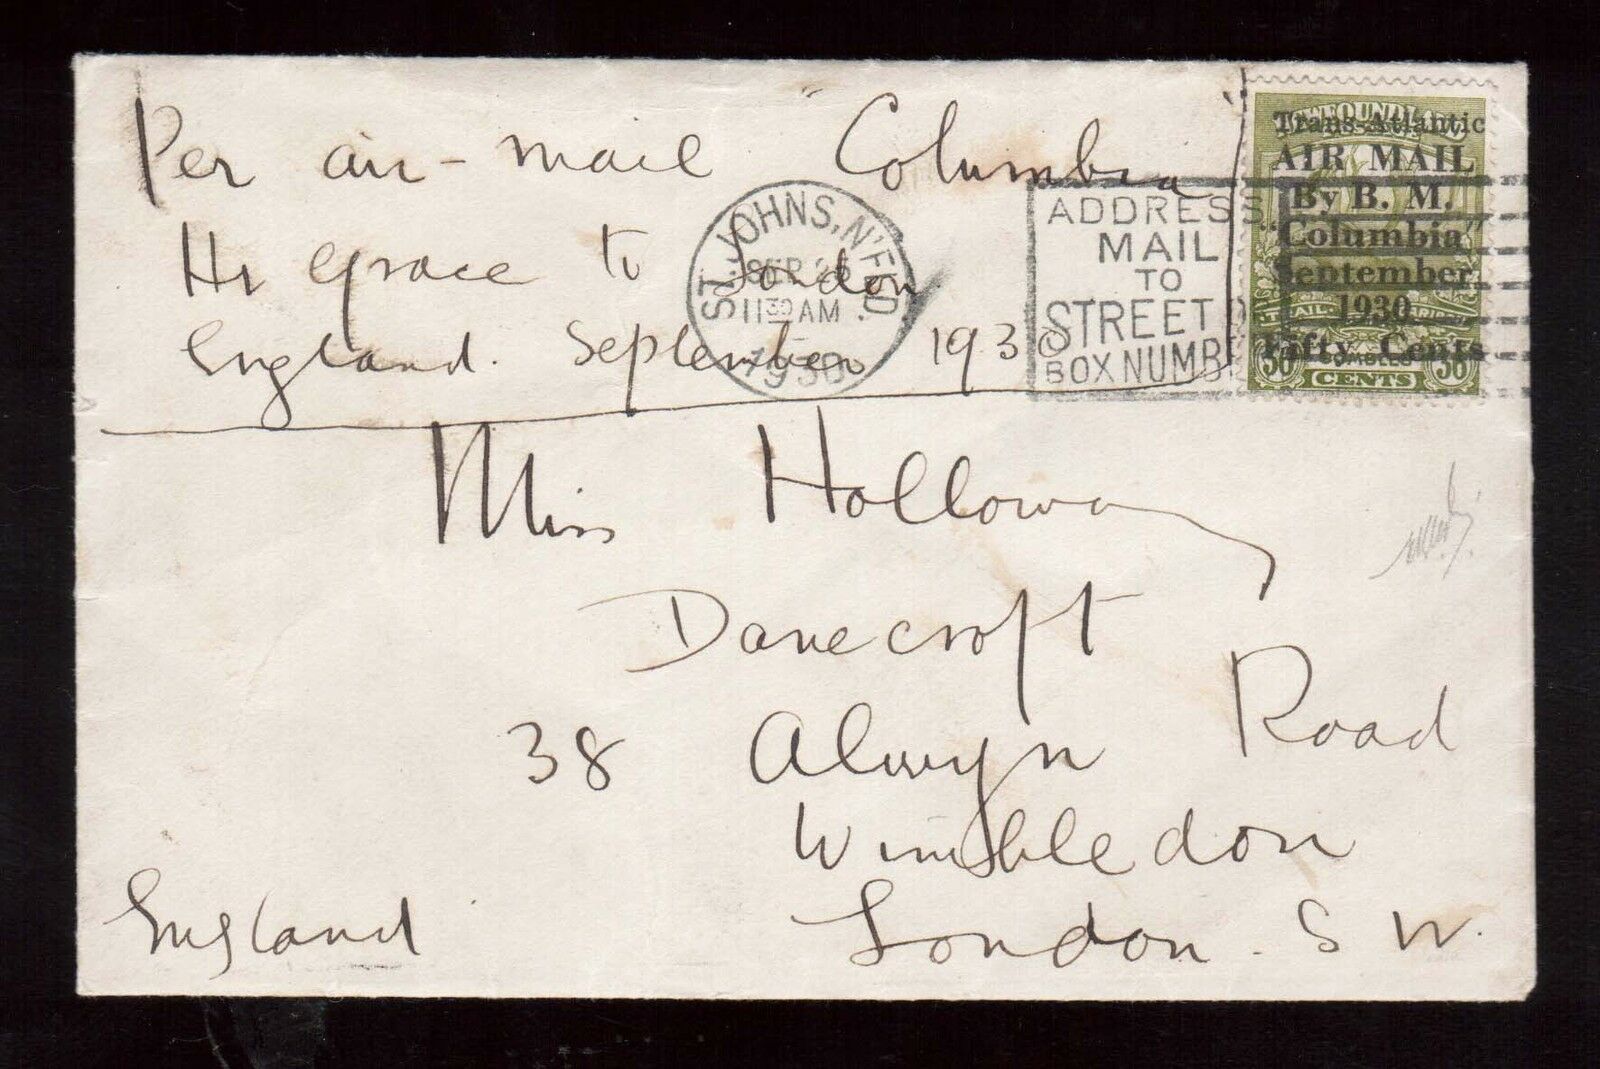 Per air-mail "Columbia
Hr Grace to London
England. September 1930
ST. JOHNS, N'F'LD.
SEP 25
11 30 AM
1930
ADDRESS
MAIL
TO
STREET
BOX NUMB
NEWFOUNDLAND
Trans-Atlantic
AIR MAIL
By B. M.
"Columbia"
September
1930
Fifty Cents
36 CENTS 36
Miss Holloway
Danecroft
38 Alwyn Road
Wimbledon
London. S W.
England